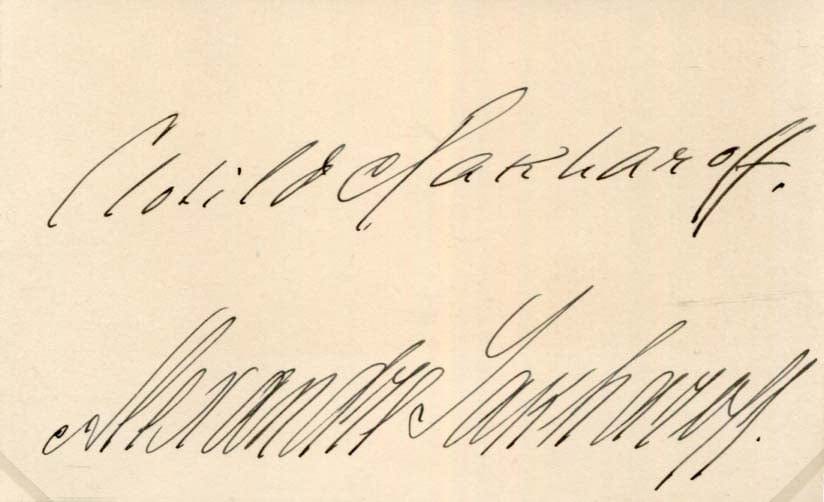 Clotilde Sakharoff.
Alexandre Sakharoff.